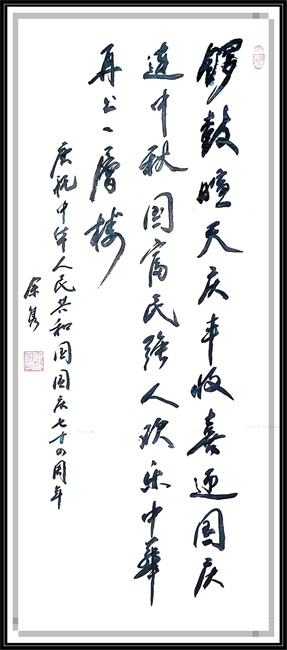 锣鼓喧天庆丰收喜迎国庆
连中秋国富民强人欢乐中华
再上一层楼
庆祝中华人民共和国国庆七十四周年
余秀